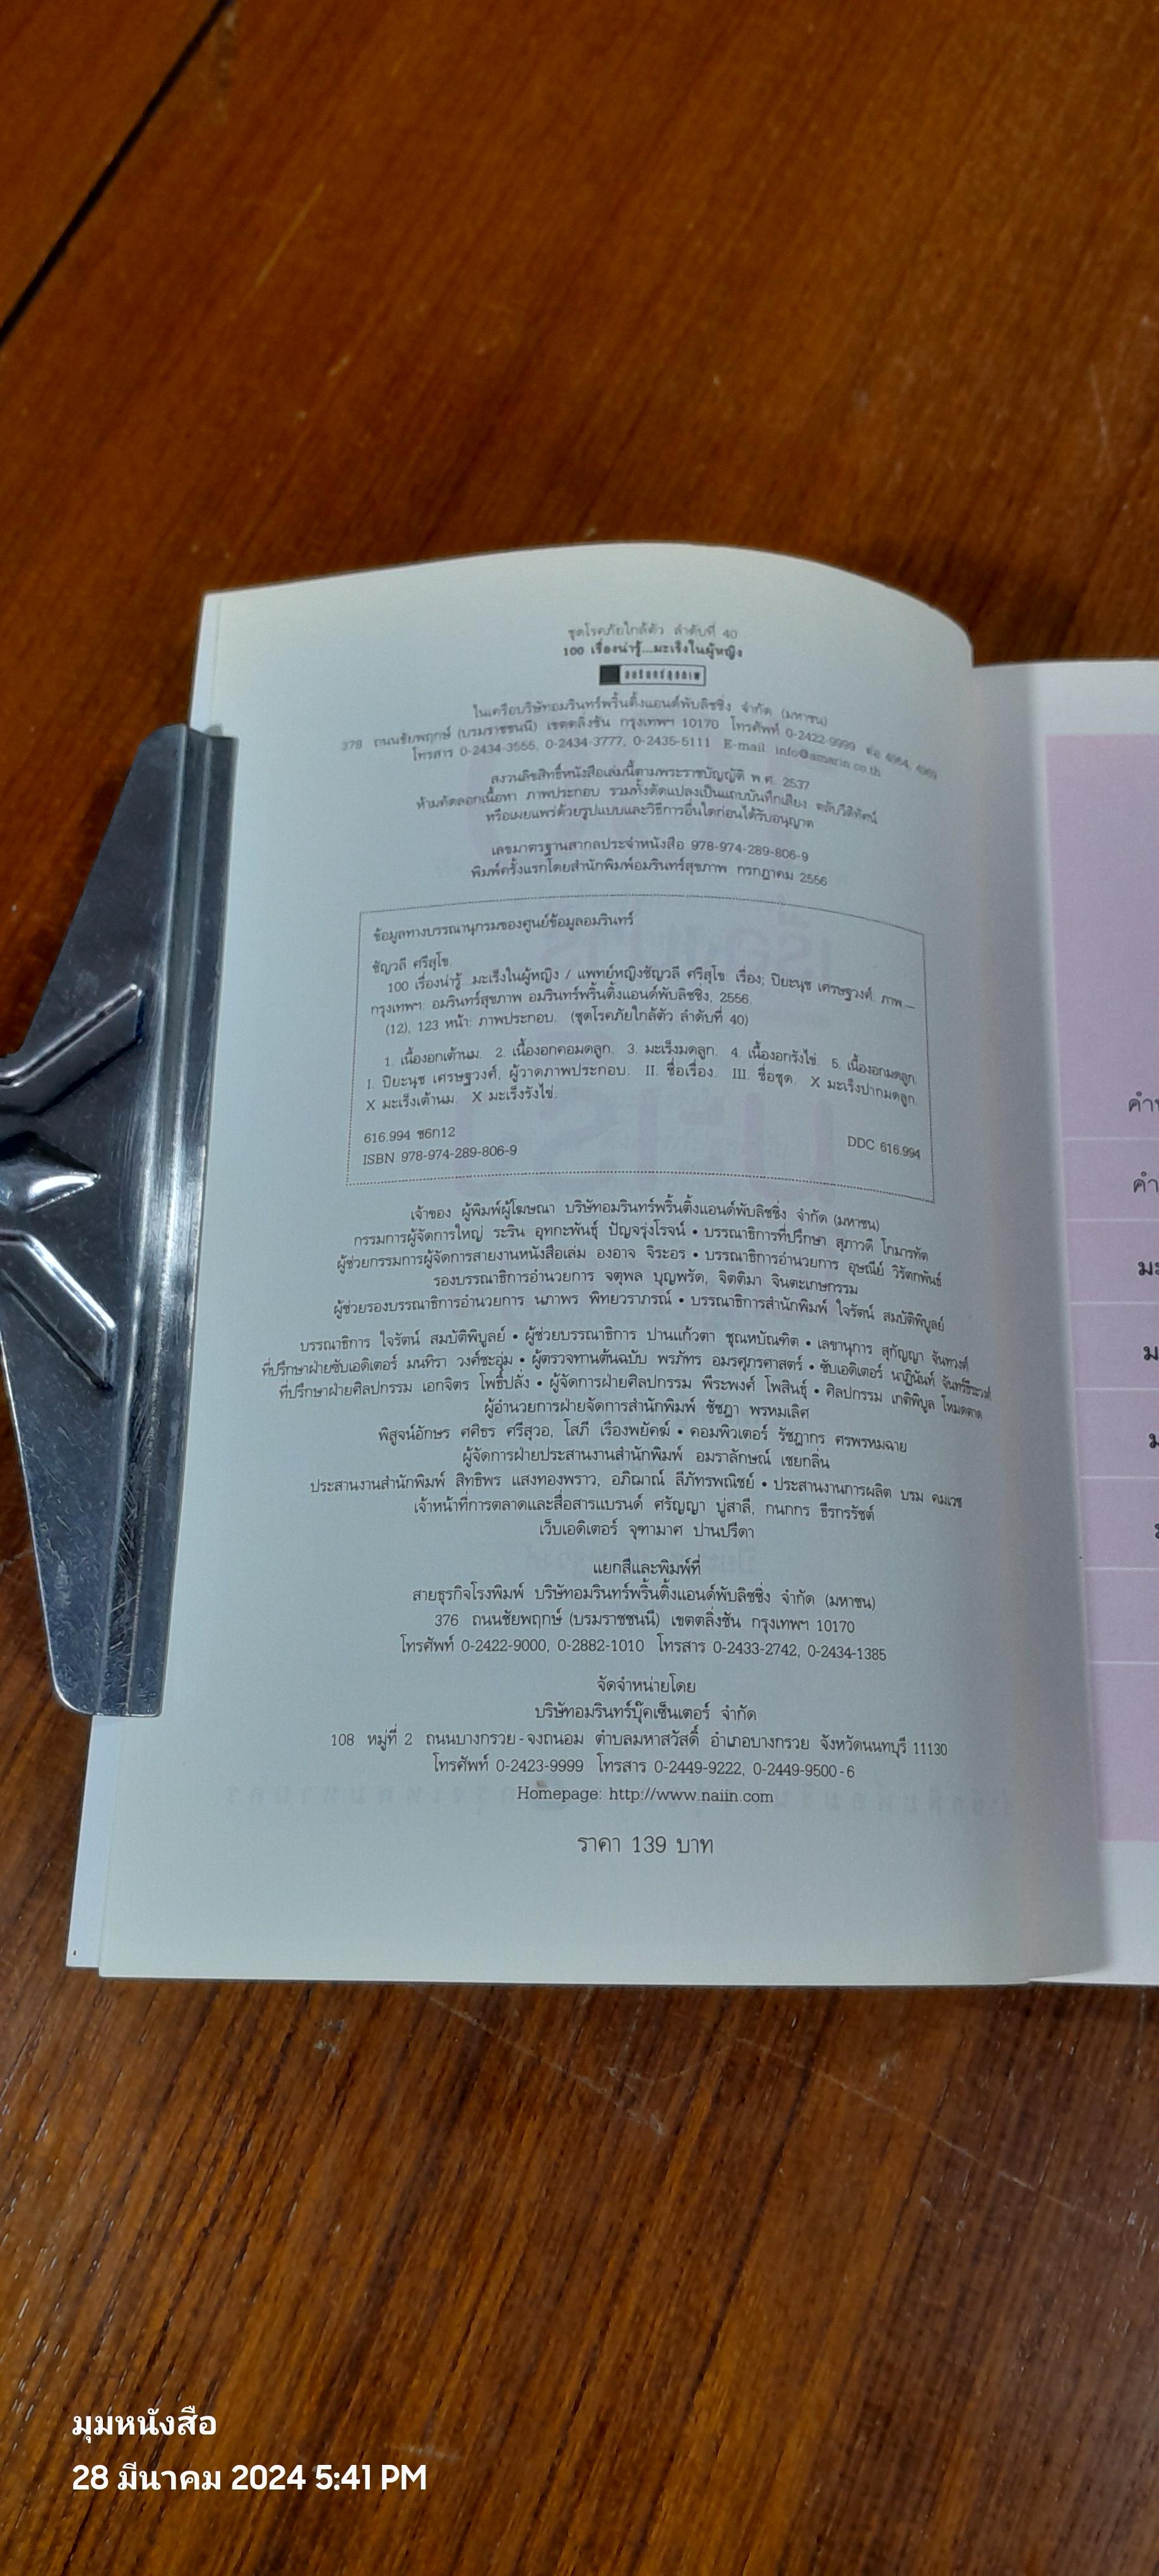 ชุดโรคภัยใกล้ตัว ลำดับที่ 40
100 เรื่องน่ารู้...มะเร็งในผู้หญิง
อมรินทร์สุขภาพ
ในเครือบริษัทอมรินทร์พริ้นติ้งแอนด์พับลิชชิ่ง จำกัด (มหาชน)
378 ถนนชัยพฤกษ์ (บรมราชชนนี) เขตตลิ่งชัน กรุงเทพฯ 10170 โทรศัพท์ 0-2422-9999 ต่อ 4964, 4969
โทรสาร 0-2434-3555, 0-2434-3777, 0-2435-5111 E-mail: info@amarin.co.th
สงวนลิขสิทธิ์หนังสือเล่มนี้ตามพระราชบัญญัติ พ.ศ. 2537
ห้ามคัดลอกเนื้อหา ภาพประกอบ รวมทั้งดัดแปลงเป็นแถบบันทึกเสียง ตลับวีดิทัศน์
หรือเผยแพร่ด้วยรูปแบบและวิธีการอื่นใดก่อนได้รับอนุญาต
เลขมาตรฐานสากลประจำหนังสือ 978-974-289-806-9
พิมพ์ครั้งแรกโดยสำนักพิมพ์อมรินทร์สุขภาพ กรกฎาคม 2556
ข้อมูลทางบรรณานุกรมของศูนย์ข้อมูลอมรินทร์
ชัญวลี ศรีสุโข.
100 เรื่องน่ารู้...มะเร็งในผู้หญิง / แพทย์หญิงชัญวลี ศรีสุโข. เรื่อง; ปิยะนุช เศรษฐวงศ์. ภาพ.—
กรุงเทพฯ: อมรินทร์สุขภาพ อมรินทร์พริ้นติ้งแอนด์พับลิชชิ่ง, 2556.
(12), 123 หน้า: ภาพประกอบ. (ชุดโรคภัยใกล้ตัว ลำดับที่ 40)
1. เนื้องอกเต้านม. 2. เนื้องอกคอมดลูก. 3. มะเร็งมดลูก. 4. เนื้องอกรังไข่. 5. เนื้องอกมดลูก.
I. ปิยะนุช เศรษฐวงศ์, ผู้วาดภาพประกอบ. II. ชื่อเรื่อง. III. ชื่อชุด. X มะเร็งปากมดลูก.
X มะเร็งเต้านม. X มะเร็งรังไข่.
616.994 ช6ก12
DDC 616.994
ISBN 978-974-289-806-9
เจ้าของ ผู้พิมพ์ผู้โฆษณา บริษัทอมรินทร์พริ้นติ้งแอนด์พับลิชชิ่ง จำกัด (มหาชน)
กรรมการผู้จัดการใหญ่ ระริน อุทกะพันธุ์ ปัญจรุ่งโรจน์ • บรรณาธิการที่ปรึกษา สุภาวดี โกมารทัต
ผู้ช่วยกรรมการผู้จัดการสายงานหนังสือเล่ม องอาจ จิระอร • บรรณาธิการอำนวยการ อุษณีย์ วิรัตกพันธ์
รองบรรณาธิการอำนวยการ จตุพล บุญพรัด, จิตติมา จินตะเกษกรรม
ผู้ช่วยรองบรรณาธิการอำนวยการ นภาพร พิทยวราภรณ์ • บรรณาธิการสำนักพิมพ์ ใจรัตน์ สมบัติพิบูลย์
บรรณาธิการ ใจรัตน์ สมบัติพิบูลย์ • ผู้ช่วยบรรณาธิการ ปานแก้วตา ชุณหบัณฑิต • เลขานุการ สุกัญญา จันทวงศ์
ที่ปรึกษาฝ่ายซับเอดิเตอร์ มนทิรา วงศ์ชะอุ่ม • ผู้ตรวจทานต้นฉบับ พรภัทร อมรศุภรศาสตร์ • ซับเอดิเตอร์ นาฏินันท์ จันทร์ธีระวงศ์
ที่ปรึกษาฝ่ายศิลปกรรม เอกจิตร โพธิ์ปลั่ง • ผู้จัดการฝ่ายศิลปกรรม พีระพงศ์ โพสินธุ์ • ศิลปกรรม เกติพิบูล โหมดตาด
ผู้อำนวยการฝ่ายจัดการสำนักพิมพ์ ชัชฎา พรหมเลิศ
พิสูจน์อักษร ศศิธร ศรีสุวอ, โสภี เรืองพยัคฆ์ • คอมพิวเตอร์ รัชฎากร ศรพรหมฉาย
ผู้จัดการฝ่ายประสานงานสำนักพิมพ์ อมราลักษณ์ เชยกลิ่น
ประสานงานสำนักพิมพ์ สิทธิพร แสงทองพราว, อภิฌาณ์ ลีภัทรพณิชย์ • ประสานงานการผลิต บรม คมเวช
เจ้าหน้าที่การตลาดและสื่อสารแบรนด์ ศรัญญา บู่สาลี, กนกกร ธีรกรรัชต์
เว็บเอดิเตอร์ จุฑามาศ ปานปรีดา
แยกสีและพิมพ์ที่
สายธุรกิจโรงพิมพ์ บริษัทอมรินทร์พริ้นติ้งแอนด์พับลิชชิ่ง จำกัด (มหาชน)
376 ถนนชัยพฤกษ์ (บรมราชชนนี) เขตตลิ่งชัน กรุงเทพฯ 10170
โทรศัพท์ 0-2422-9000, 0-2882-1010 โทรสาร 0-2433-2742, 0-2434-1385
จัดจำหน่ายโดย
บริษัทอมรินทร์บุ๊คเซ็นเตอร์ จำกัด
108 หมู่ที่ 2 ถนนบางกรวย-จงถนอม ตำบลมหาสวัสดิ์ อำเภอบางกรวย จังหวัดนนทบุรี 11130
โทรศัพท์ 0-2423-9999 โทรสาร 0-2449-9222, 0-2449-9500-6
Homepage: http://www.naiin.com
ราคา 139 บาท
มุมหนังสือ
28 มีนาคม 2024 5:41 PM